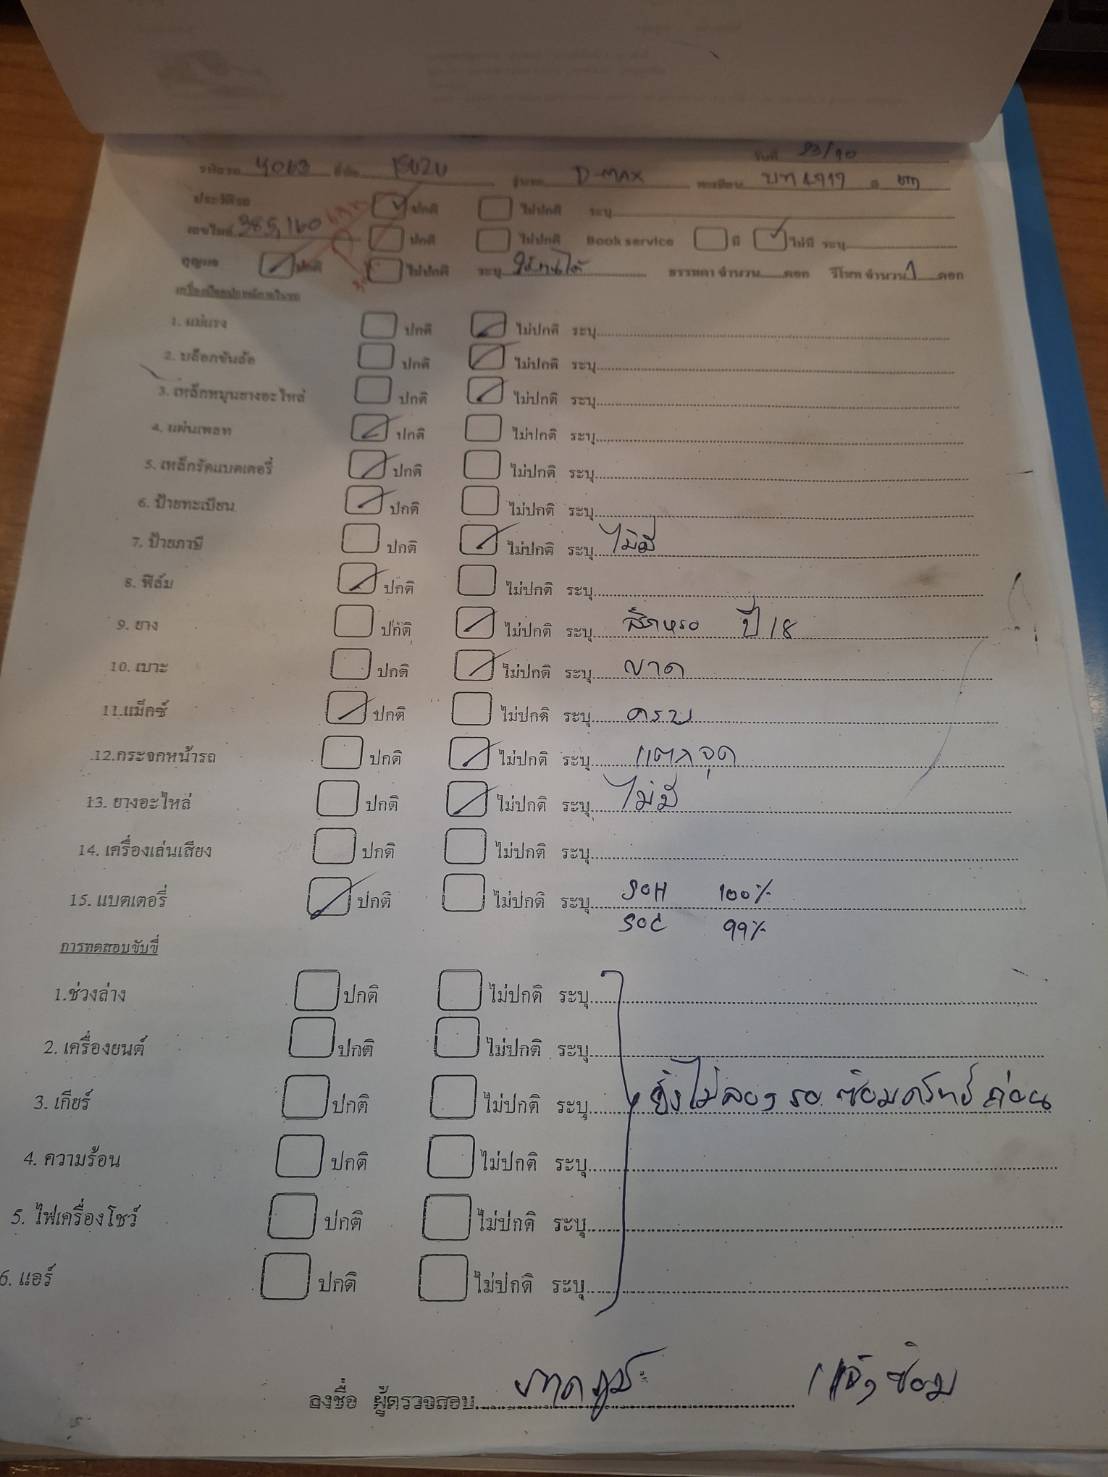 วันที่ 23/10
รหัสรถ 4063 ยี่ห้อ ISUZU รุ่นรถ D-MAX ทะเบียน
ประวัติรถ ปกติ ไม่ปกติ ระบุ
เลขไมล์ 385,160 ปกติ ไม่ปกติ Book service มี ไม่มี ระบุ
กุญแจ ปกติ ไม่ปกติ ระบุ ใช้งานได้ ธรรมดา จำนวน ดอก รีโมท จำนวน 1 ดอก
1. แม่แรง ปกติ ไม่ปกติ ระบุ
2. บล็อกขันล้อ ปกติ ไม่ปกติ ระบุ
3. เหล็กหมุนยางอะไหล่ ปกติ ไม่ปกติ ระบุ
4. แผ่นเพลท ปกติ ไม่ปกติ ระบุ
5. เหล็กรัดแบตเตอรี่ ปกติ ไม่ปกติ ระบุ
6. ป้ายทะเบียน ปกติ ไม่ปกติ ระบุ
7. ป้ายภาษี ปกติ ไม่ปกติ ระบุ ไม่มี
8. ฟิล์ม ปกติ ไม่ปกติ ระบุ
9. ยาง ปกติ ไม่ปกติ ระบุ สึกหรอ ปี 18
10. เบาะ ปกติ ไม่ปกติ ระบุ ขาด
11.แม็กซ์ ปกติ ไม่ปกติ ระบุ ครบ
12.กระจกหน้ารถ ปกติ ไม่ปกติ ระบุ แตกจุด
13. ยางอะไหล่ ปกติ ไม่ปกติ ระบุ ไม่มี
14. เครื่องเล่นเสียง ปกติ ไม่ปกติ ระบุ
15. แบตเตอรี่ ปกติ ไม่ปกติ ระบุ SOH 100%
SOC 99%
การทดสอบขับขี่
1.ช่วงล่าง ปกติ ไม่ปกติ ระบุ
2. เครื่องยนต์ ปกติ ไม่ปกติ ระบุ
3. เกียร์ ปกติ ไม่ปกติ ระบุ ยังไม่ลอง รอ ซ่อมครัทช์ ก่อน
4. ความร้อน ปกติ ไม่ปกติ ระบุ
5. ไฟเครื่องโชว์ ปกติ ไม่ปกติ ระบุ
6. แอร์ ปกติ ไม่ปกติ ระบุ
ลงชื่อ ผู้ตรวจสอบ แจ้งซ่อม